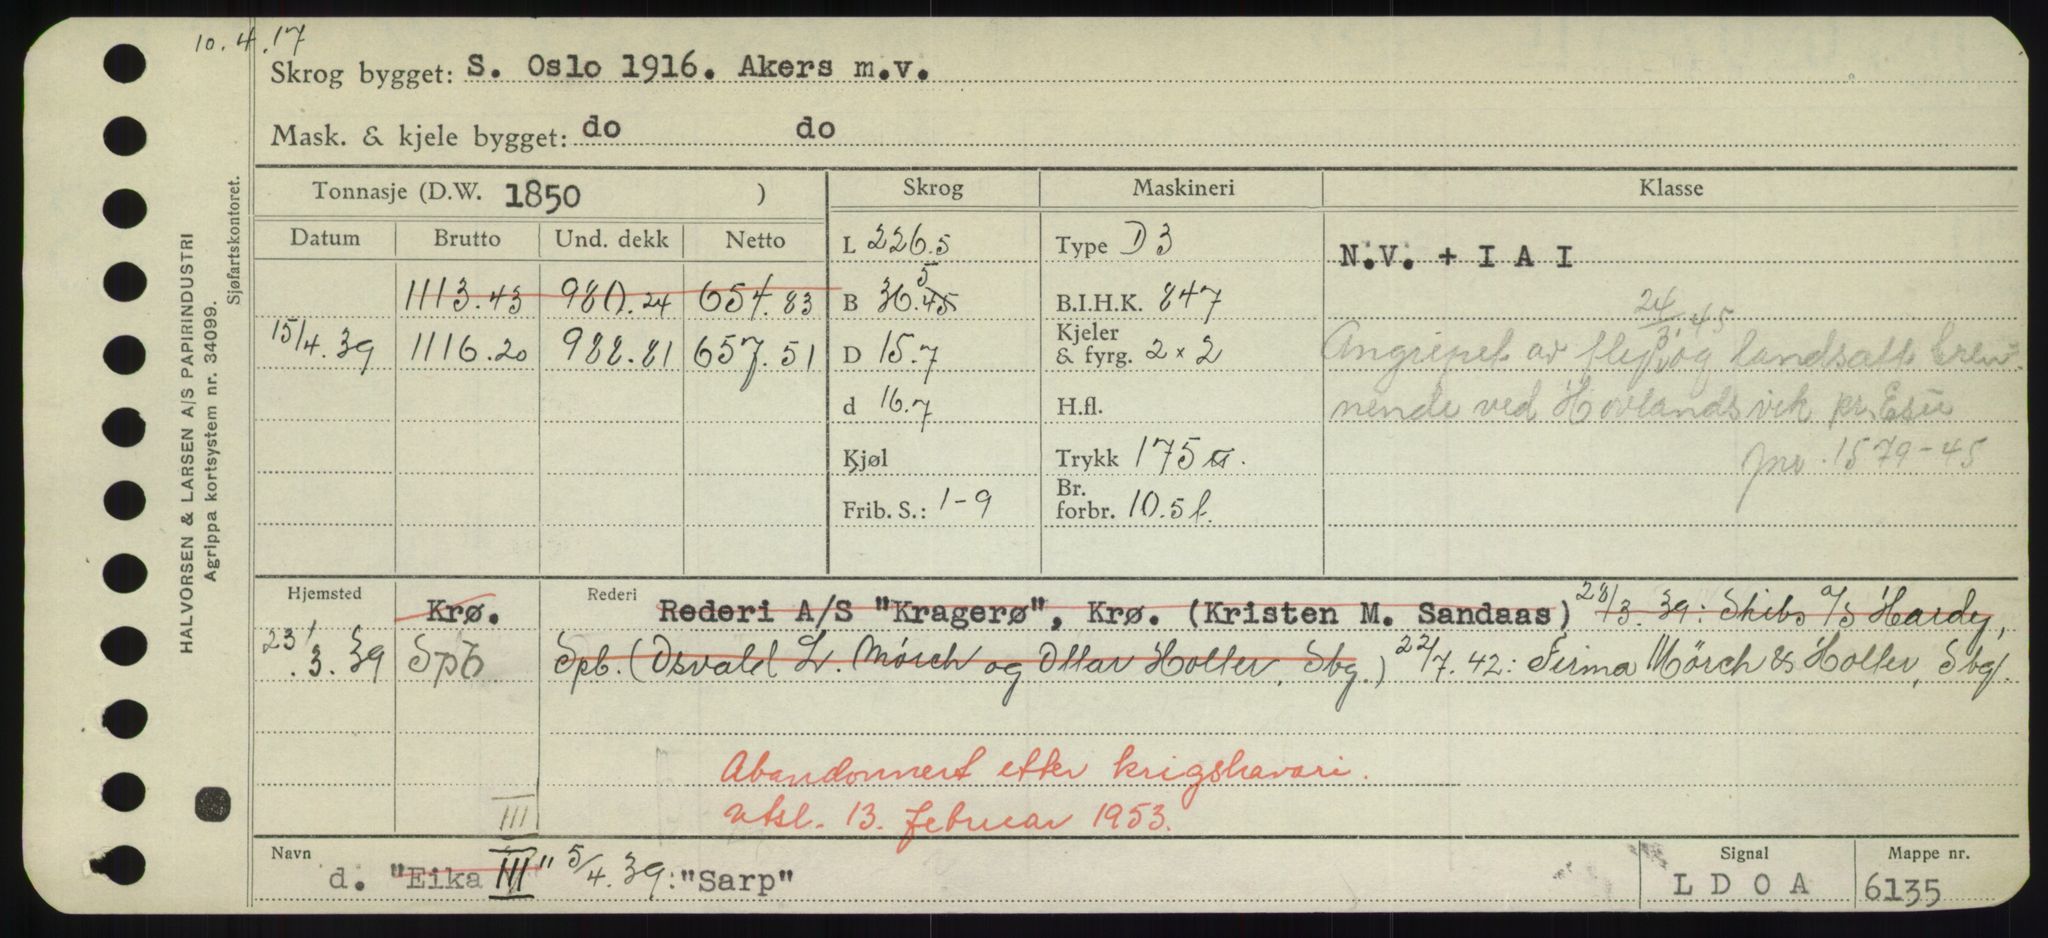 10.4.17
Skrog bygget: S. Oslo 1916. Akers m.v.
Mask. & kjele bygget: do do
HALVORSEN & LARSEN A/S PAPIRINDUSTRI
Agrippa kortsystem nr. 34099.
Sjøfartskontoret.
Tonnasje (D.W. 1850 ) Skrog Maskineri Klasse
Datum Brutto Und. dekk Netto L 226.5 Type D 3 N.V. + I A I
1113.43 980.24 654.83 B 36.45 5 B.I.H.K. 847
15/4.39 1116.20 988.81 657.51 D 15.7 Kjeler & fyrg. 2 x 2
d 16.7 H.fl.
Kjøl Trykk 175
Frib. S.: 1-9 Br. forbr. 10.5 t.
24/3.45
Angrepet av fly og landsatt bren-
nende ved Hovlandsvik pr.
jnr. 1579-45
Hjemsted Krø. Rederi Rederi A/S "Kragerø", Krø. (Kristen M. Sandaas) 28/3.39: Skibs A/S Hardy,
23/3.39 Spb Spb. (Osvald L. Mörch og Ottar Holter, Sbg.) 22/7.42: Firma Mörch & Holter, Sbg.
Abandonnert etter krigshavari.
utsl. 13. februar 1953.
III
Navn d. "Eika III" 5/4.39: "Sarp" Signal L D O A Mappe nr. 6135